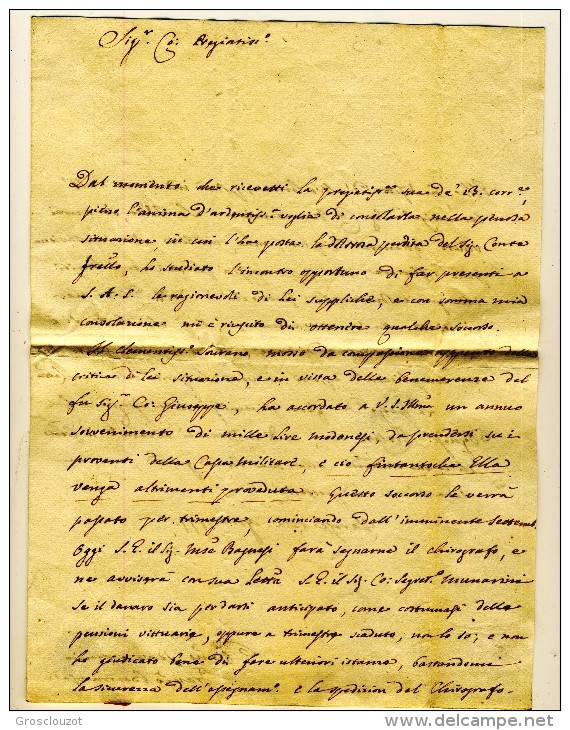 Sig.r Co: Pregiatiss.o
Dal momento che ricevetti la pregiatiss.ma sua de' 13. corr.e,
pieno l'anima d'ardentiss.a voglia di consolarla nella penosa
situazione in cui l'ha posta la dolorosa perdita del Sig. Conte
frello, ho studiato l'incontro opportuno di far presenti a
S. A. S. le ragionevoli di Lei suppliche, e con somma mia
consolazione mi è riuscito di ottenere qualche socorso.
Il Clementiss.o Sovrano, mosso da compassione
critica di lei situazione, e in vista delle benemerenze del
fu Sig.r Co: Giuseppe, ha accordato a V. S. Illma un annuo
sovvenimento di mille lire modonesi, da prendersi su i
proventi della Cassa Militare, e ciò fintantochè Ella
venga altrimenti proveduta. Questo socorso le verrà
passato per trimestre, cominciando dall'imminente Settemb.
Oggi S. E. il Sig. Bagnesi farà segnarne il chirografo, e
ne avviserà con sua Lettra S. E. il Sig. Co: Segret.o Munarini
Se il danaro sia per darsi anticipato, come costumasi delle
pensioni vittuarie, oppure a trimestre scaduto, non lo so; e non
ho giudicato bene di fare ulteriori istanze, bastandomi
la sicurezza dell'assegnam.o e la spedizion del Chirografo.
Grosclouzot
delcampe.net